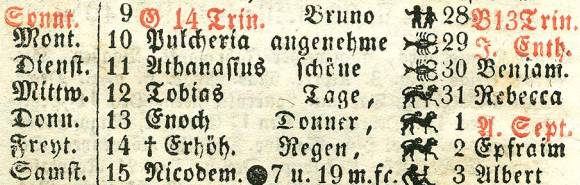 Sonnt. 9 G 14 Trin. Bruno 28 B13Trin.
Mont. 10 Pulcheria angenehme 29 J. Enth.
Dienst. 11 Athanasius schöne 30 Benjam.
Mittw. 12 Tobias Tage, 31 Rebecca
Donn. 13 Enoch Donner, 1 A. Sept.
Freyt. 14 † Erhöh. Regen, 2 Epfraim
Samst. 15 Nicodem. 7 u. 19 m.fr. 3 Albert